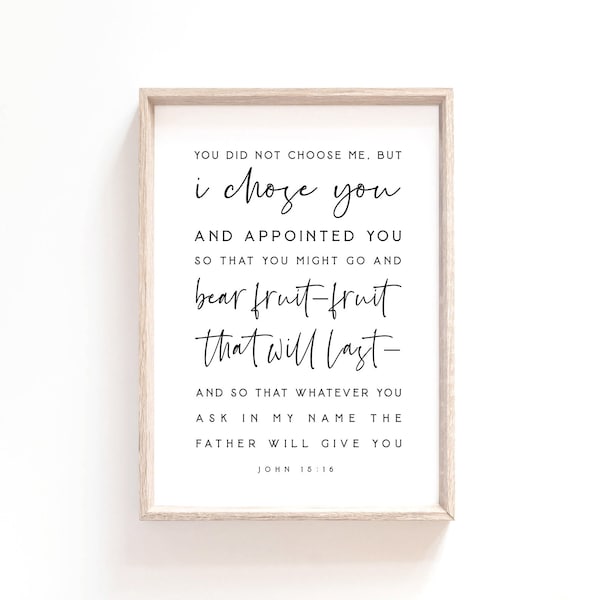 YOU DID NOT CHOOSE ME, BUT
i chose you
AND APPOINTED YOU
SO THAT YOU MIGHT GO AND
bear fruit–fruit
that will last–
AND SO THAT WHATEVER YOU
ASK IN MY NAME THE
FATHER WILL GIVE YOU
JOHN 15:16